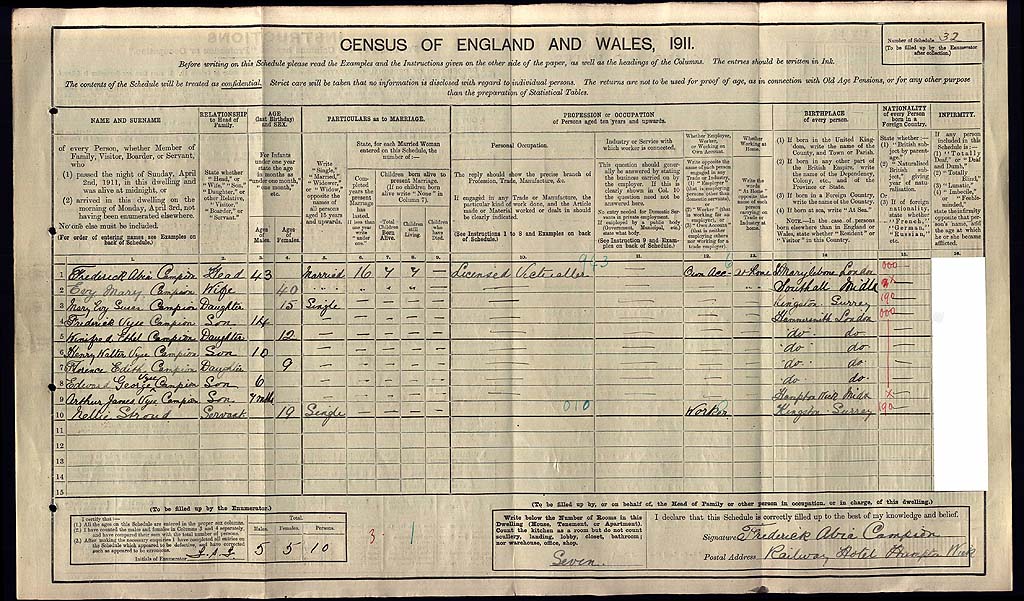 CENSUS OF ENGLAND AND WALES, 1911.
Number of Schedule 32
(To be filled up by the Enumerator after collection.)
Before writing on this Schedule please read the Examples and the Instructions given on the other side of the paper, as well as the headings of the Columns. The entries should be written in Ink.
The contents of the Schedule will be treated as confidential. Strict care will be taken that no information is disclosed with regard to individual persons. The returns are not to be used for proof of age, as in connection with Old Age Pensions, or for any other purpose
than the preparation of Statistical Tables.
NAME AND SURNAME
of every Person, whether Member of
Family, Visitor, Boarder, or Servant,
who
(1) passed the night of Sunday, April
2nd, 1911, in this dwelling and
was alive at midnight, or
(2) arrived in this dwelling on the
morning of Monday, April 3rd, not
having been enumerated elsewhere.
No one else must be included.
(For order of entering names see Examples on
back of Schedule.)
RELATIONSHIP
to Head of
Family.
State whether
"Head," or
"Wife," "Son,"
"Daughter," or
other Relative,
"Visitor,"
"Boarder," or
"Servant."
AGE
(last Birthday)
and SEX.
For Infants
under one year
state the
age in months
as "under one
month," "one
month," etc.
Ages of Males.
Ages of Females.
PARTICULARS as to MARRIAGE.
Write
"Single,"
"Married,"
"Widower,"
or "Widow,"
opposite the
names of
all persons
aged 15 years
and upwards.
State, for each Married Woman
entered on this Schedule, the
number of:—
Completed years the present Marriage has lasted. If less than one year write "under one."
Children born alive to present Marriage. (If no children born alive write "None" in Column 7).
Total Children Born Alive.
Children still Living.
Children who have Died.
PROFESSION or OCCUPATION
of Persons aged ten years and upwards.
Personal Occupation.
The reply should show the precise branch of
Profession, Trade, Manufacture, &c.
If engaged in any Trade or Manufacture, the
particular kind of work done, and the Article
made or Material worked or dealt in should
be clearly indicated.
(See Instructions 1 to 8 and Examples on
back of Schedule.)
Industry or Service with
which worker is connected.
This question should generally be answered by stating the business carried on by the employer. If this is clearly shown in Col. 10 the question need not be answered here.
No entry needed for Domestic Servants in private employment.
(See Instruction 9 and Examples on back of Schedule.)
Whether Employer,
Worker,
or Working on
Own Account.
Whether
Working at
Home.
Write the words "At Home" opposite the name of each person carrying on Trade or Industry at home.
BIRTHPLACE
of every person.
(1) If born in the United Kingdom, write the name of the County, and Town or Parish.
(2) If born in any other part of the British Empire, write the name of the Dependency, Colony, etc., and of the Province or State.
(3) If born in a Foreign Country, write the name of the Country.
(4) If born at sea, write "At Sea."
NOTE.—In the case of persons born elsewhere than in England or Wales, state whether "Resident" or "Visitor" in this Country.
NATIONALITY
of every Person
born in a
Foreign Country.
State whether:—
(1) "British subject by parentage."
(2) "Naturalised British subject," giving year of naturalisation.
(3) If of foreign nationality, state whether "French," "German," "Russian," etc.
INFIRMITY.
If any person included in this Schedule is:—
(1) "Totally Deaf," or "Deaf and Dumb,"
(2) "Totally Blind,"
(3) "Lunatic,"
(4) "Imbecile," or "Feeble-minded,"
state the infirmity opposite that person's name, and the age at which he or she became afflicted.
1 Frederick Avia Campion Head 43 Married 16 7 7 — Licensed Victualler 943 — Own Acc At Home Marylebone London 000 —
2 Evy Mary Campion Wife 40 Southall Middx
3 Mary Evy Susan Campion Daughter 15 Single Kingston Surrey 190
4 Frederick Vyse Campion Son 14 Hammersmith London 000
5 Winifred Ethel Campion Daughter 12 do do
6 Henry Walter Vyse Campion Son 10 do do
7 Florence Edith Campion Daughter 9 do do
8 Edward George Vyse Campion Son 6 do do
9 Arthur James Vyse Campion Son 7 mths Hampton Wick Midx
10 Nellie Stroud Servant 19 Single 010 Worker Kingston Surrey 190
11
12
13
14
15
(To be filled up by the Enumerator.)
I certify that:—
(1.) All the ages on this Schedule are entered in the proper sex columns.
(2.) I have counted the males and females in Columns 3 and 4 separately, and have compared their sum with the total number of persons.
(3.) After making the necessary enquiries I have completed all entries on the Schedule which appeared to be defective, and have corrected such as appeared to be erroneous.
Initials of Enumerator
Total.
Males. Females. Persons.
5 5 10
3 1
(To be filled up by, or on behalf of, the Head of Family or other person in occupation, or in charge, of this dwelling.)
Write below the Number of Rooms in this
Dwelling (House, Tenement, or Apartment).
Count the kitchen as a room but do not count
scullery, landing, lobby, closet, bathroom;
nor warehouse, office, shop.
Seven.
I declare that this Schedule is correctly filled up to the best of my knowledge and belief.
Signature Frederick Avia Campion
Postal Address Railway Hotel Hampton Wick